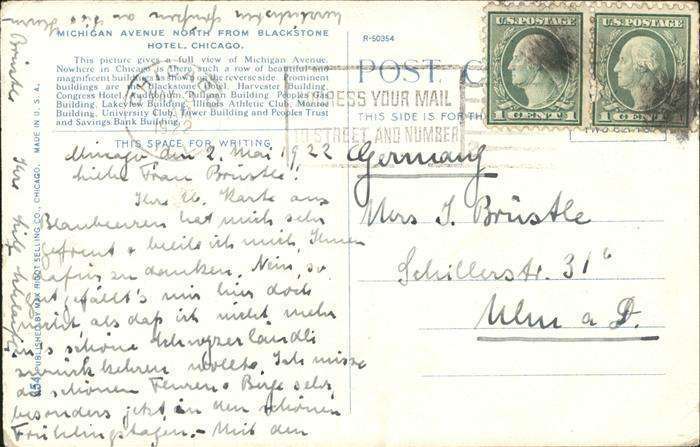 MICHIGAN AVENUE NORTH FROM BLACKSTONE
HOTEL, CHICAGO.
This picture gives a full view of Michigan Avenue.
Nowhere in Chicago is there such a row of beautiful and
magnificent buildings as shown on the reverse side. Prominent
buildings are the Blackstone Hotel, Harvester Building,
Congress Hotel, Auditorium, Pullman Building, Peoples Gas
Building, Lakeview Building, Illinois Athletic Club, Monroe
Building, University Club, Tower Building and Peoples Trust
and Savings Bank Building.
THIS SPACE FOR WRITING
R-50354
POST C
THIS SIDE IS FOR TH
U.S. POSTAGE
1 CENT 1
U.S. POSTAGE
1 CENT 1
CHICAGO
1922
ADDRESS YOUR MAIL
TO STREET AND NUMBER
PUBLISHED BY MAX RIGOT SELLING CO., CHICAGO.
MADE IN U. S. A.
Chicago den 2. Mai 1922
Liebe Frau Brüstle!
Ihre lb. Karte aus
Blaubeuren hat mich sehr
gefreut & beeile ich mich, Ihnen
dafür zu danken. Nein, so
gut gefällt's mir hier doch
nicht, als daß ich nicht mehr
ins schöne Schwyzerländli
zurück kehren wollte. Ich misse
die schönen Berge sehr,
besonders jetzt in den schönen
Frühlingstagen. Mit den
Germany
Mrs J. Brüstle
Schillerstr. 31
Ulm a D.
Brüstle
Ihre